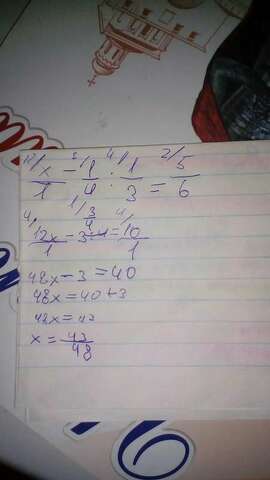 12/ x/1 - 3/ 1/4 : 4/ 1/3 = 2/ 5/6
4/ 12x/1 - 1/ 3/4 = 4/ 10/1
48x - 3 = 40
48x = 40 + 3
48x = 43
x = 43/48